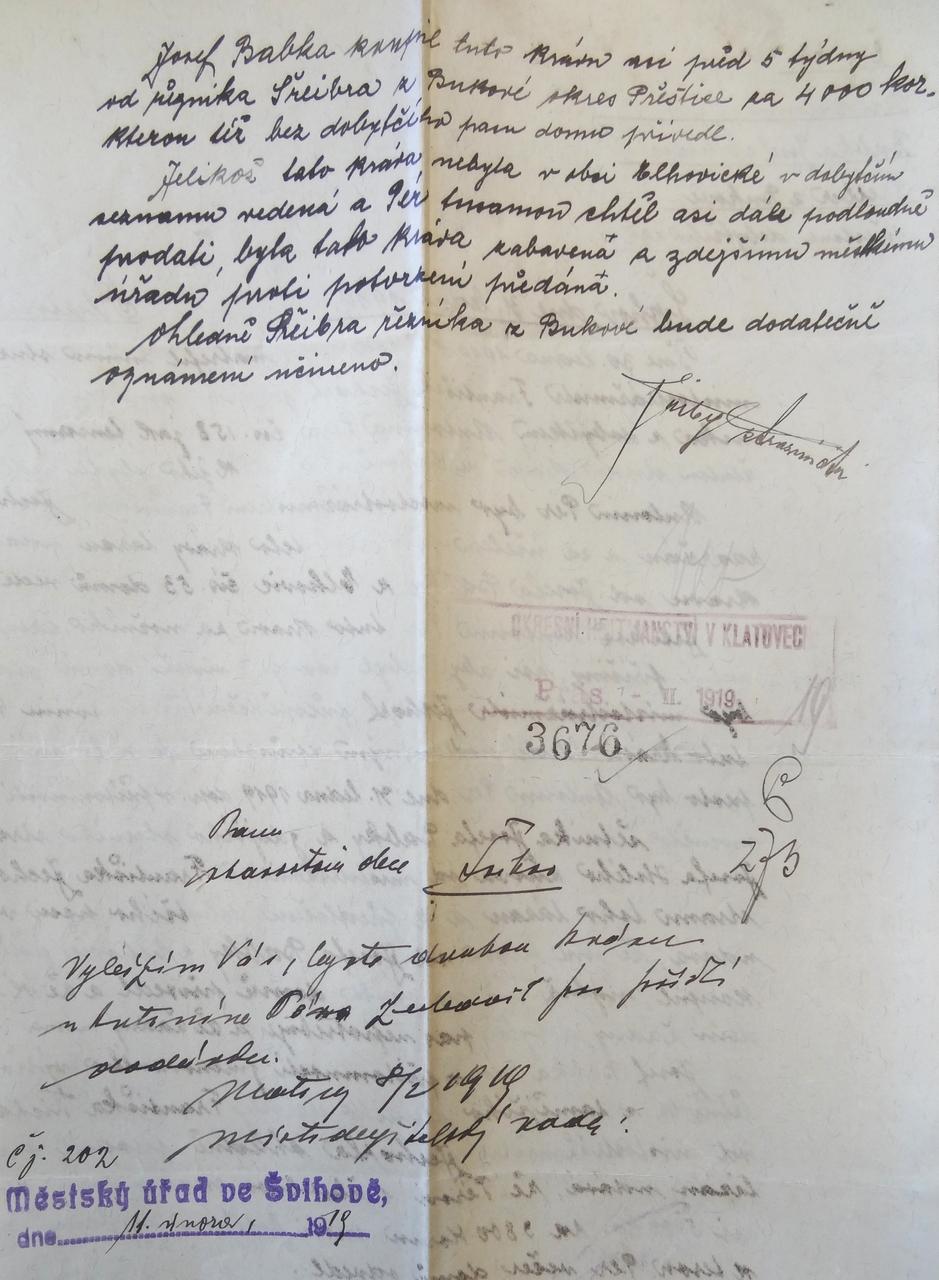 Josef Babka koupil tuto krávu asi před 5 týdny
od řezníka Šreibra z Bukové okres Přeštice za 4000 kor.
kterou též bez dobytčího pasu domu přivedl.
Jelikož tato kráva nebyla v obci Elhovické v dobytčím
seznamu vedená a Pér tusamou chtěl asi dále podloudně
prodati, byla tato kráva zabavená a zdejšímu městkému
úřadu proti potvrzení předána.
Ohledně Šreibra řezníka z Bukové bude dodatečně
oznámení učineno.
OKRESNÍ HEJTMANSTVÍ V KLATOVECH
Präs. - II. 1919
19
3676
Panu
starostovi obce Švihov
Vyzývám Vás, byste druhou krávu
u Antonína Péra zabavil pro příští
dodávku.
Klatovy 8/2 1919
Místodržitelský rada:
Č j. 202
Městský úřad ve Švihově,
dne 11. února 1919